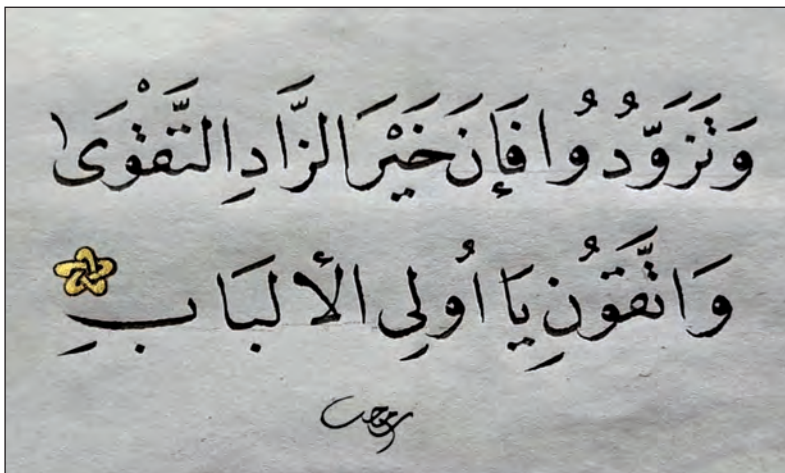 وَتَزَوَّدُوا فَإِنَ خَيْرَ الزَّادِ التَّقْوَى
وَاتَّقُونِ يَا أُولِى الأَلبَابِ